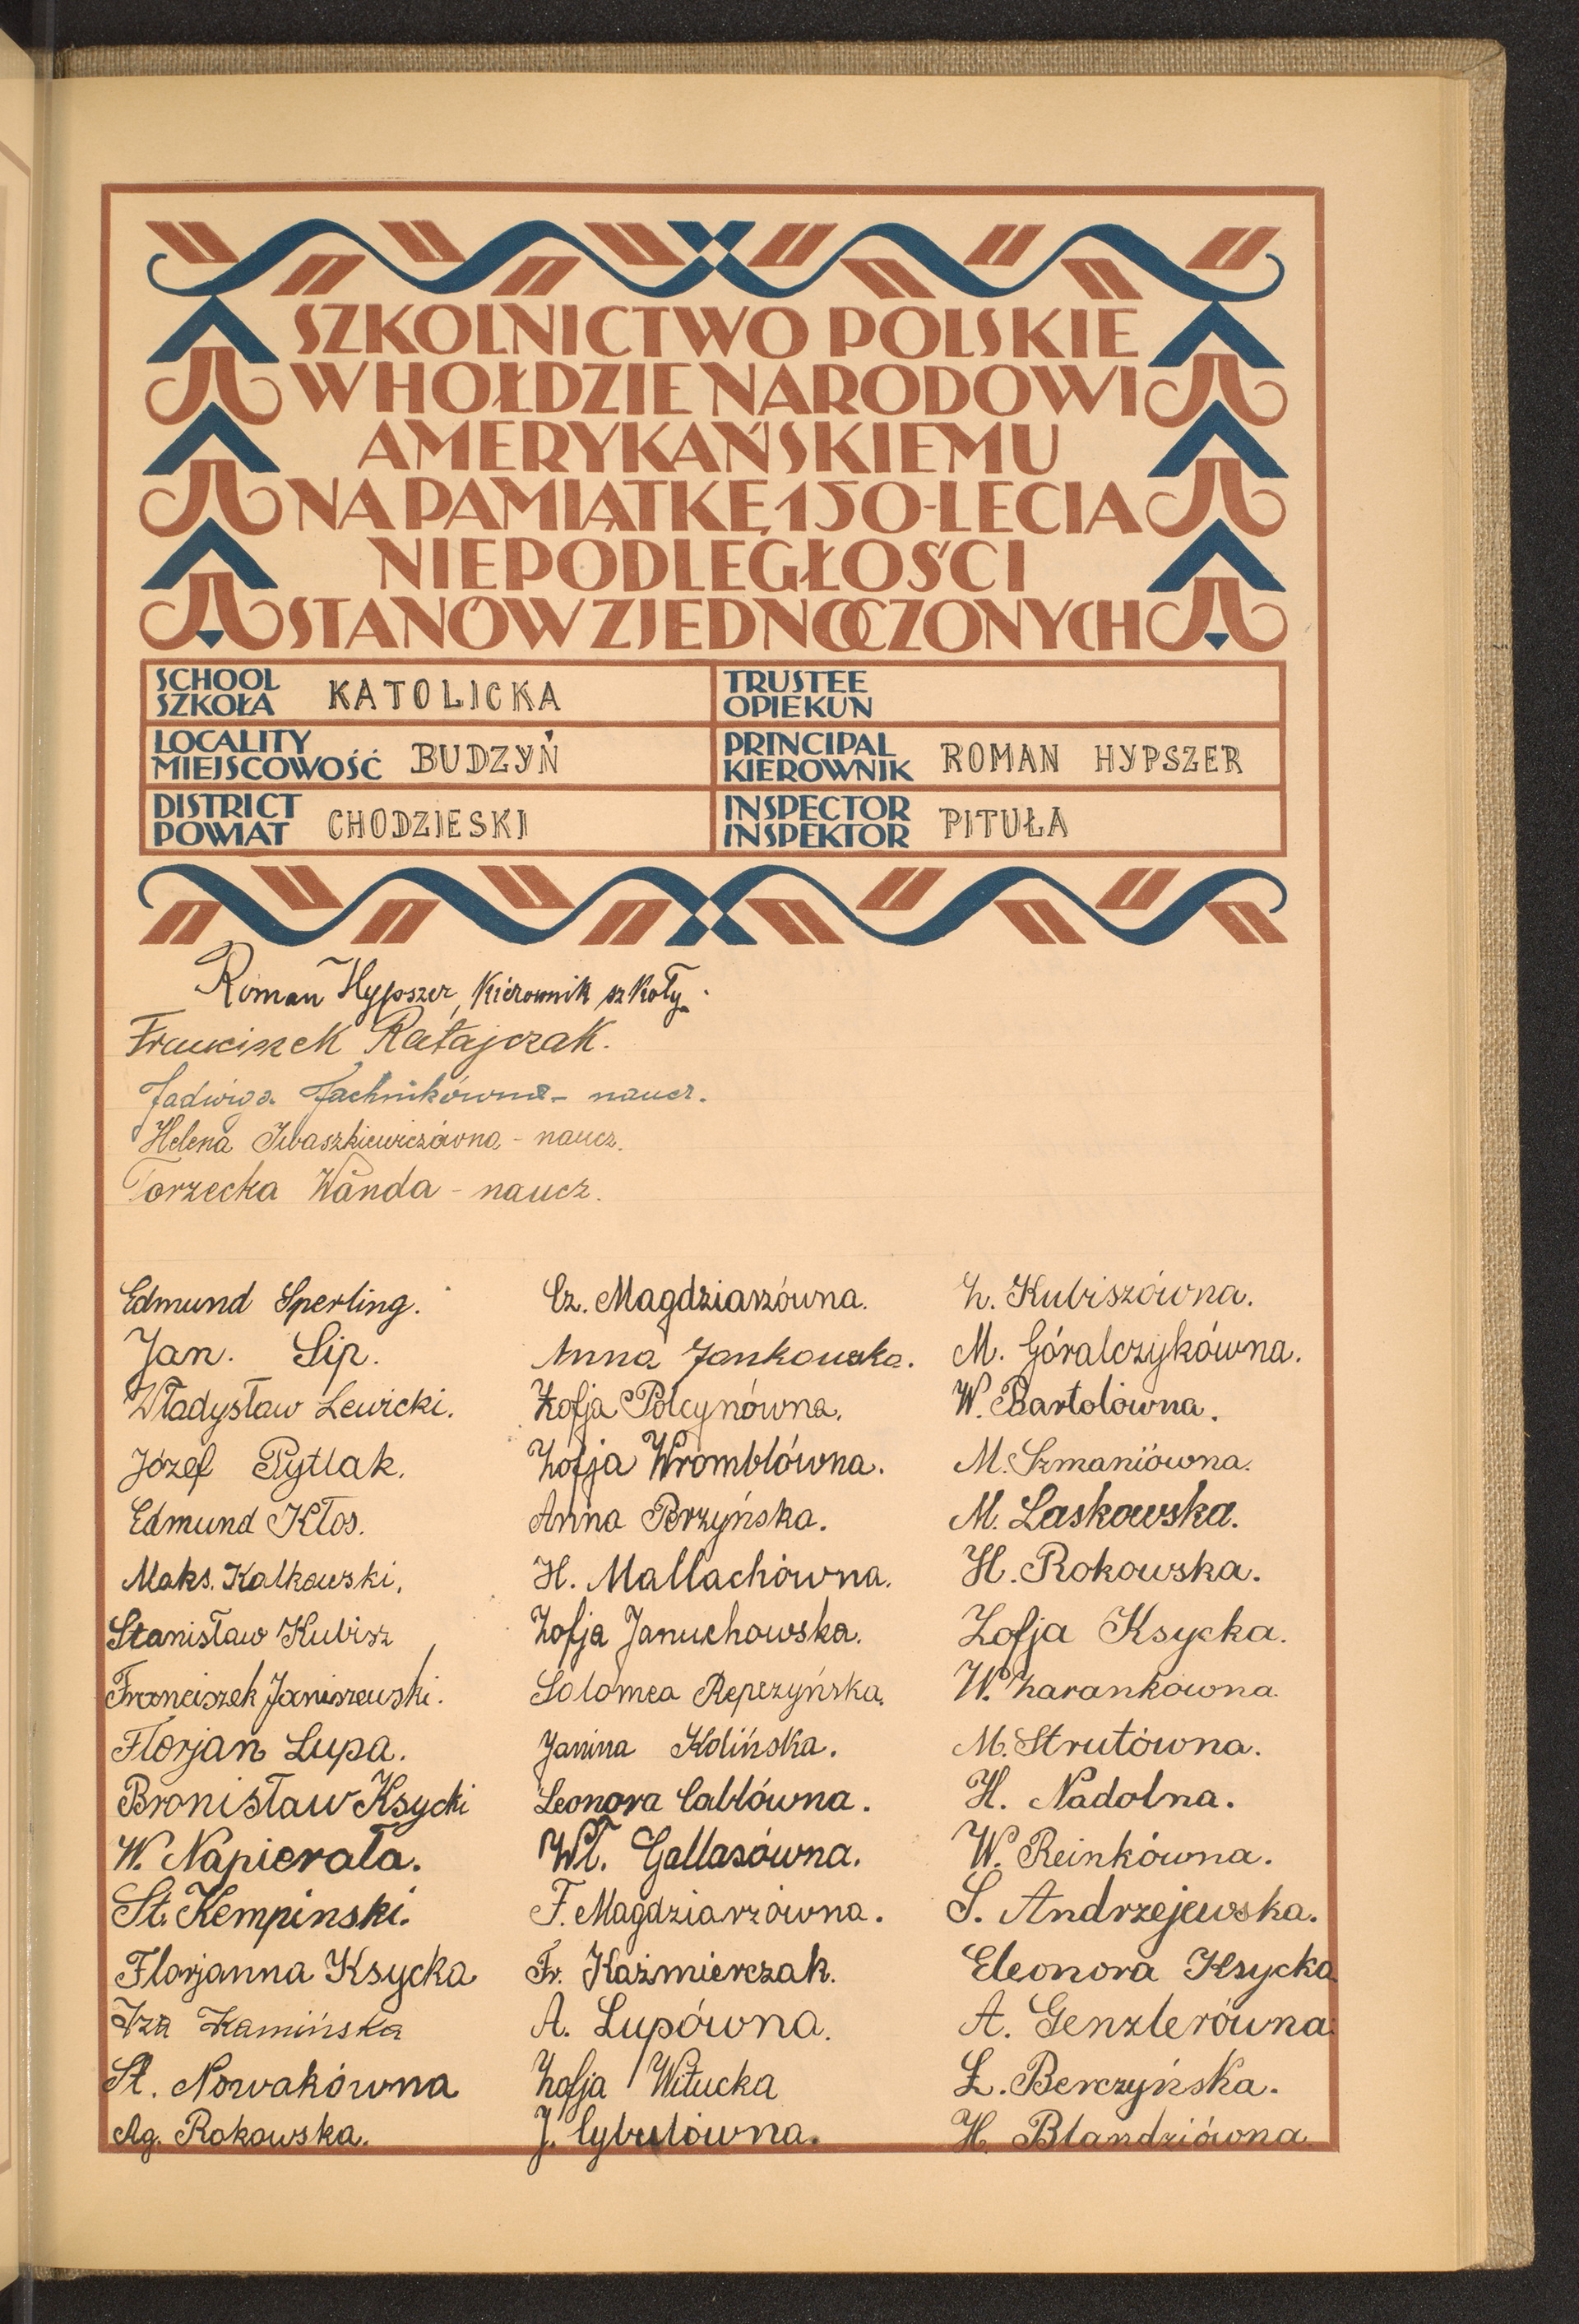 SZKOLNICTWO POLSKIE
W HOŁDZIE NARODOWI
AMERYKAŃSKIEMU
NA PAMIĄTKĘ 150-LECIA
NIEPODLEGŁOŚCI
STANÓW ZJEDNOCZONYCH
SCHOOL
SZKOŁA KATOLICKA
TRUSTEE
OPIEKUN
LOCALITY
MIEJSCOWOŚĆ BUDZYŃ
PRINCIPAL
KIEROWNIK ROMAN HYPSZER
DISTRICT
POWIAT CHODZIESKI
INSPECTOR
INSPEKTOR PITUŁA
Roman Hypszer, Kierownik szkoły.
Franciszek Ratajczak.
Jadwiga Jachnikówna - naucz.
Helena Iwaszkiewiczówna - naucz.
Torzecka Wanda - naucz.
Edmund Sperling.
Jan. Sip.
Władysław Lewicki.
Józef Pytlak.
Edmund Kłos.
Maks. Kalkowski.
Stanisław Kubisz
Franciszek Janiszewski.
Florjan Lupa.
Bronisław Ksycki
W. Napierała.
St. Kempinski.
Florjanna Ksycka
Iza Kamińska
St. Nowakówna
Ag. Rokowska.
Cz. Magdziarzówna.
Anna Jankowska.
Zofja Polcynówna.
Zofja Wromblówna.
Anna Perzyńska.
H. Mallachówna.
Zofja Januchowska.
Salomea Repczyńska.
Janina Kolińska.
Leonora Cablówna.
Wł. Gallasówna.
F. Magdziarzówna.
Fr. Kaźmierczak.
A. Lupówna.
Zofja Witucka
J. Cybulówna.
Z. Kubiszówna.
M. Góralczykówna.
W. Bartolówna.
M. Szmaniówna.
M. Laskowska.
H. Rokowska.
Zofja Ksycka.
W. Zarankówna.
M. Strutówna.
H. Nadolna.
W. Reinkówna.
S. Andrzejewska.
Eleonora Ksycka
A. Genzlerówna.
Ł. Berczyńska.
H. Blandziówna.